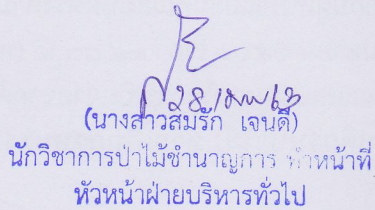 28 เมย 63
(นางสาวสมรัก เจนดี)
นักวิชาการป่าไม้ชำนาญการ ทำหน้าที่
หัวหน้าฝ่ายบริหารทั่วไป